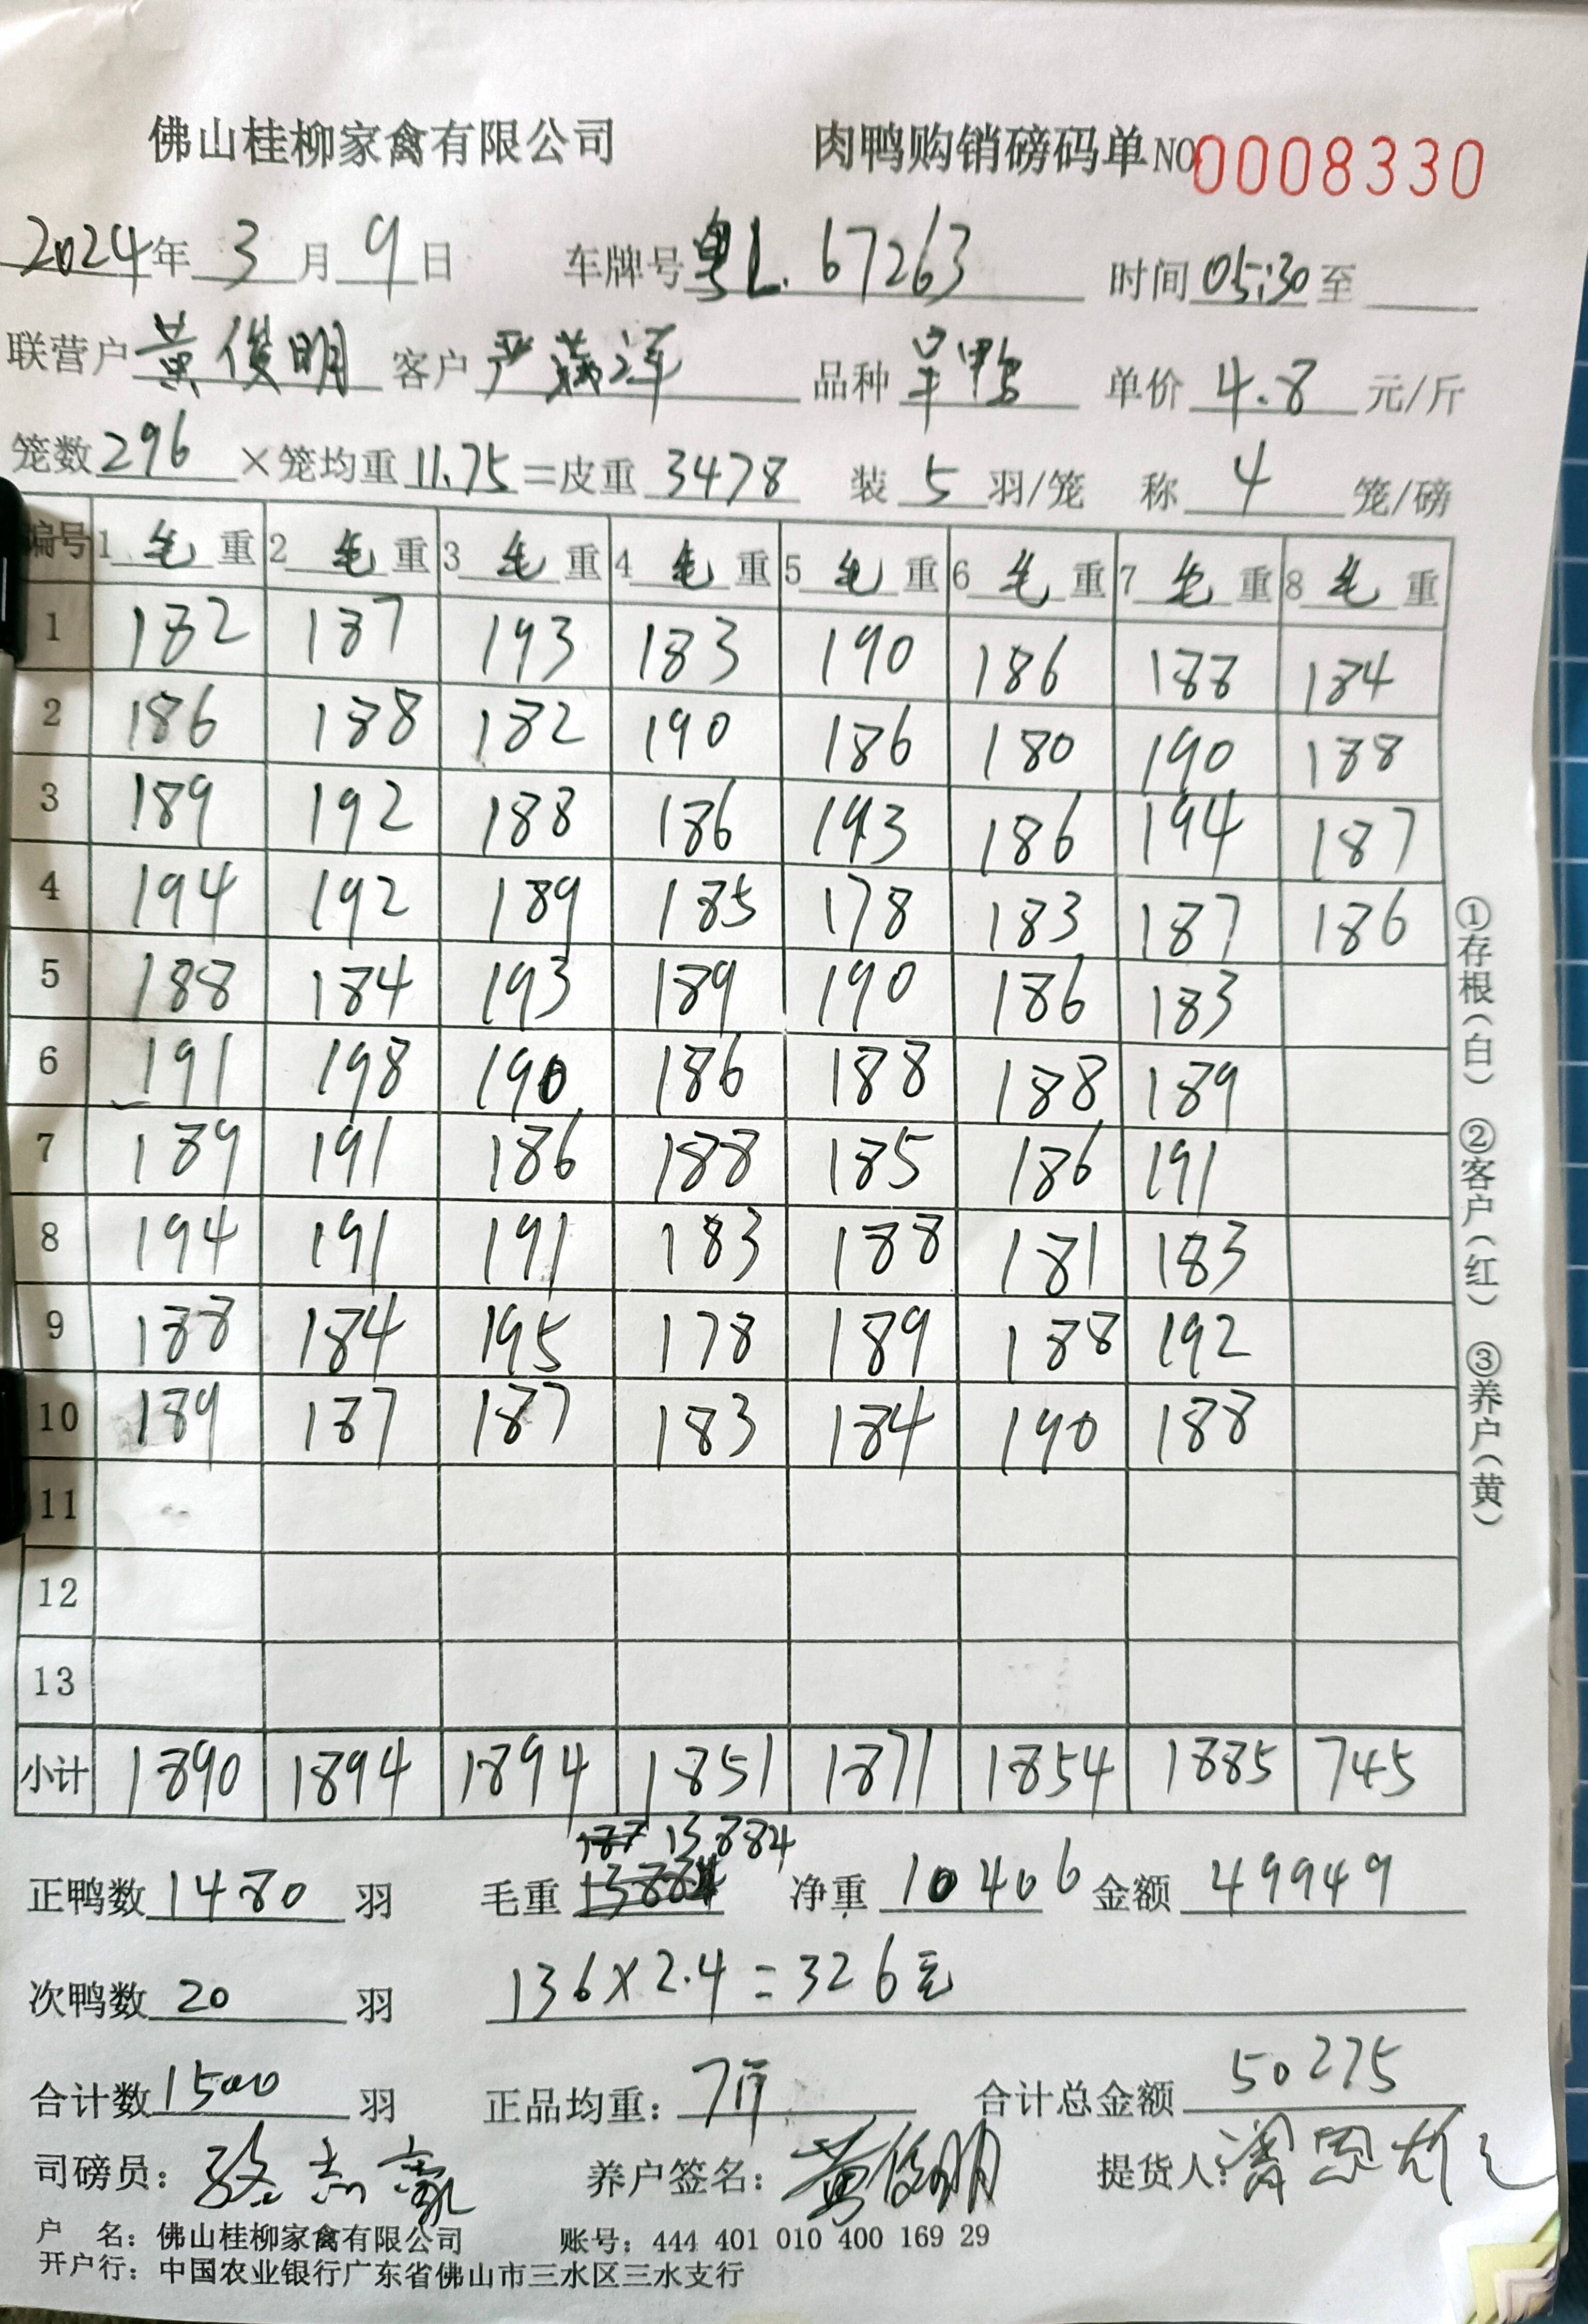 佛山桂柳家禽有限公司 肉鸭购销磅码单 NO 0008330
2024年 3 月 9 日 车牌号 粤L.67263 时间 05:30 至
联营户 黄俊明 客户 严 品种 鸭 单价 4.8 元/斤
笼数 296 ×笼均重 11.75 =皮重 3478 装 5 羽/笼 称 4 笼/磅
编号 1 毛 重 2 毛 重 3 毛 重 4 毛 重 5 毛 重 6 毛 重 7 毛 重 8 毛 重
1 182 187 193 183 190 186 188 184
2 186 188 182 190 186 180 190 188
3 189 192 188 186 193 186 194 187
4 194 192 189 185 178 183 187 186
5 188 184 193 189 190 186 183
6 191 198 190 186 188 188 189
7 189 191 186 188 185 186 191
8 194 191 191 183 188 181 183
9 188 184 195 178 189 188 192
10 189 187 187 183 184 190 188
11
12
13
小计 1890 1894 1894 1851 1871 1854 1885 745
正鸭数 1480 羽 毛重 13884 净重 10406 金额 49949
次鸭数 20 羽 136×2.4=326元
合计数 1500 羽 正品均重： 7斤 合计总金额 50275
司磅员： 骆志豪 养户签名： 黄俊明 提货人：
户 名：佛山桂柳家禽有限公司 账号：444 401 010 400 169 29
开户行：中国农业银行广东省佛山市三水区三水支行
①存根（白） ②客户（红） ③养户（黄）